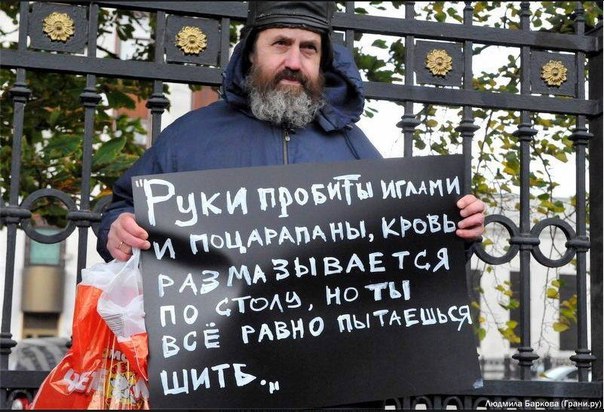 "Руки пробиты иглами
и поцарапаны, кровь
размазывается
по столу, но ты
всё равно пытаешься
шить.„
Людмила Баркова (Грани.ру)